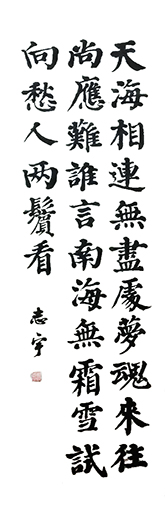 天海相連無盡處夢魂來往
尚應難誰言南海無霜雪試
向愁人两鬢看
志宇